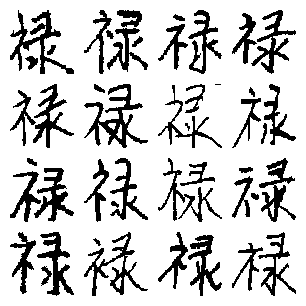 禄禄禄禄
禄禄禄禄
禄禄禄禄
禄禄禄禄